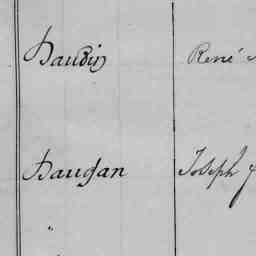 Daudin René
Daugan Joseph
"